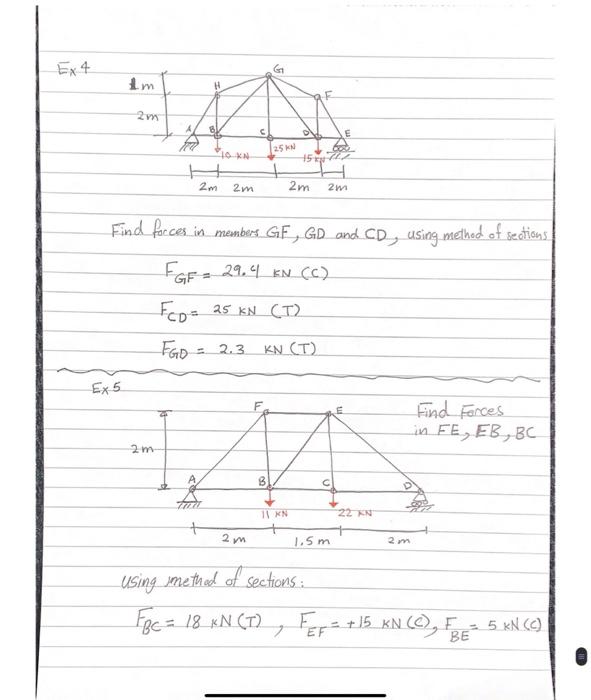 Ex 4
1m
2m
G
H
F
A
B
C
D
E
10 KN
25 KN
15 KN
2m 2m 2m 2m
Find forces in members GF, GD and CD, using method of sections
F_GF = 29.4 KN (C)
F_CD = 25 KN (T)
F_GD = 2.3 KN (T)
Ex 5
Find Forces
in FE, EB, BC
F
E
2m
A
B
C
D
11 KN
22 KN
2m 1.5m 2m
Using method of sections:
F_BC = 18 KN (T), F_EF = +15 KN (C), F_BE = 5 KN (C)